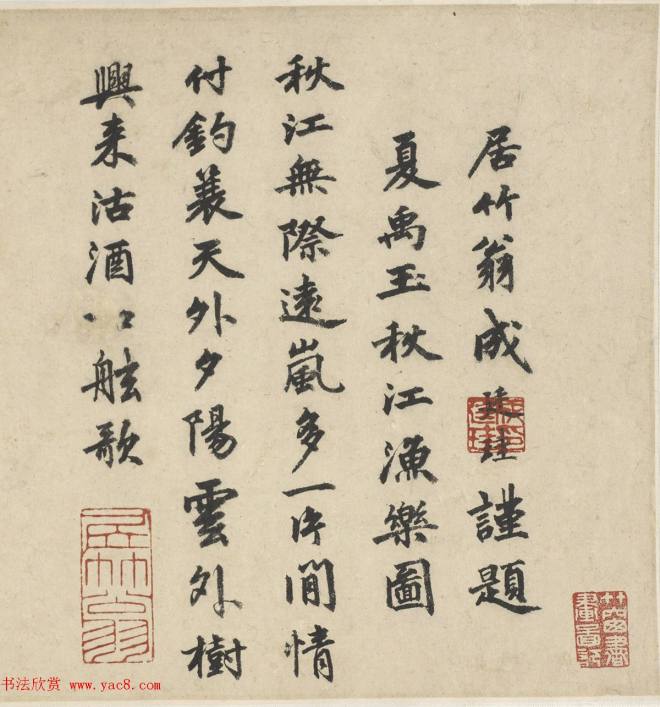 居竹翁成廷珪謹題
夏禹玉秋江漁樂圖
秋江無際遠嵐多一片閒情
付釣蓑天外夕陽雲外樹
興来沽酒舷歌
居竹翁
书法欣赏 www.yac8.com